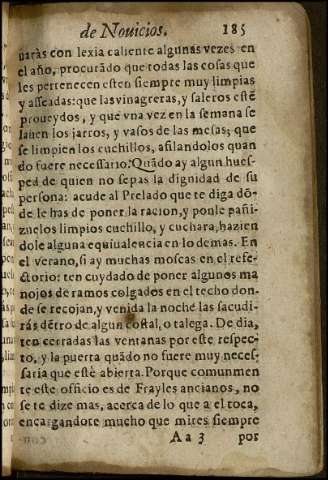 de Nouicios. 185
uaràs con lexia caliente algunas vezes en
el año, procurãdo que todas las cosas que
les pertenecen esten siempre muy limpias
y asseadas: que las vinagreras, y saleros estẽ
proueydos, y que vna vez en la semana se
lauen los jarros, y vasos de las mesas; que
se limpien los cuchillos, afilandolos quan
do fuere necessario. Quãdo ay algun hues-
ped de quien no sepas la dignidad de su
persona: acude al Prelado que te diga dõ-
de le has de poner la racion, y ponle pañi-
zuelos limpios cuchillo, y cuchara, hazien
dole alguna equiualencia en lo demas. En
el verano, si ay muchas moscas en el refe-
ctorio: ten cuydado de poner algunos ma
nojos de ramos colgados en el techo don-
de se recojan, y venida la noche las sacudi-
rás dẽtro de algun costal, o talega. De dia,
ten cerradas las ventanas por este respec-
to, y la puerta quãdo no fuere muy neces-
saria que estè abierta. Porque comunmen
te este officio es de Frayles ancianos, no
se te dize mas, acerca de lo que a el toca,
encargandote mucho que mires siempre
Aa 3 por